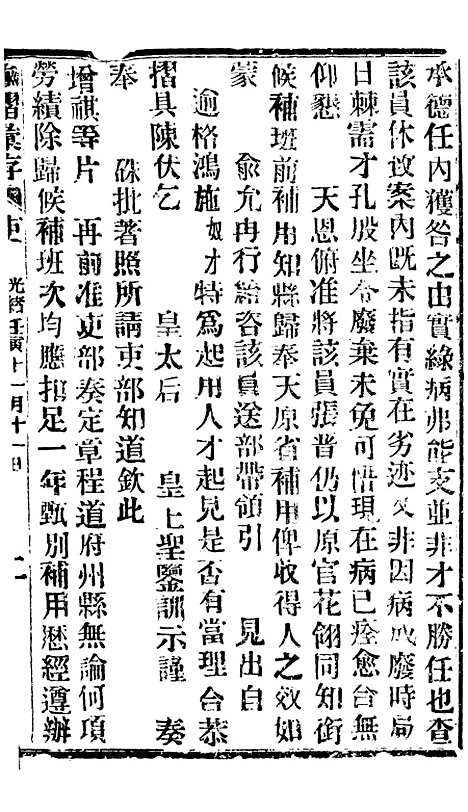 承德任內獲咎之由實緣病弗能支並非才不勝任也查
該員休致案內既未指有實在劣迹又非因病成廢時局
日棘需才孔殷坐令廢棄未免可惜現在病已痊愈合無
仰懇 天恩俯准將該員張普仍以原官花翎同知銜
候補班前補用知縣歸奉天原省補用俾收得人之效如
蒙 俞允冉行給咨該員送部帶領引 見出自
逾格鴻施奴才特爲起用人才起見是否有當理合恭
摺具陳伏乞 皇太后 皇上聖鑒訓示謹 奏
奉 硃批著照所請吏部知道欽此
增祺等片 再前准吏部奏定章程道府州縣無論何項
勞績除歸候補班次均應扣足一年甄別補用歷經遵辦
諭摺彙存 光緒壬寅十一月十一日 二